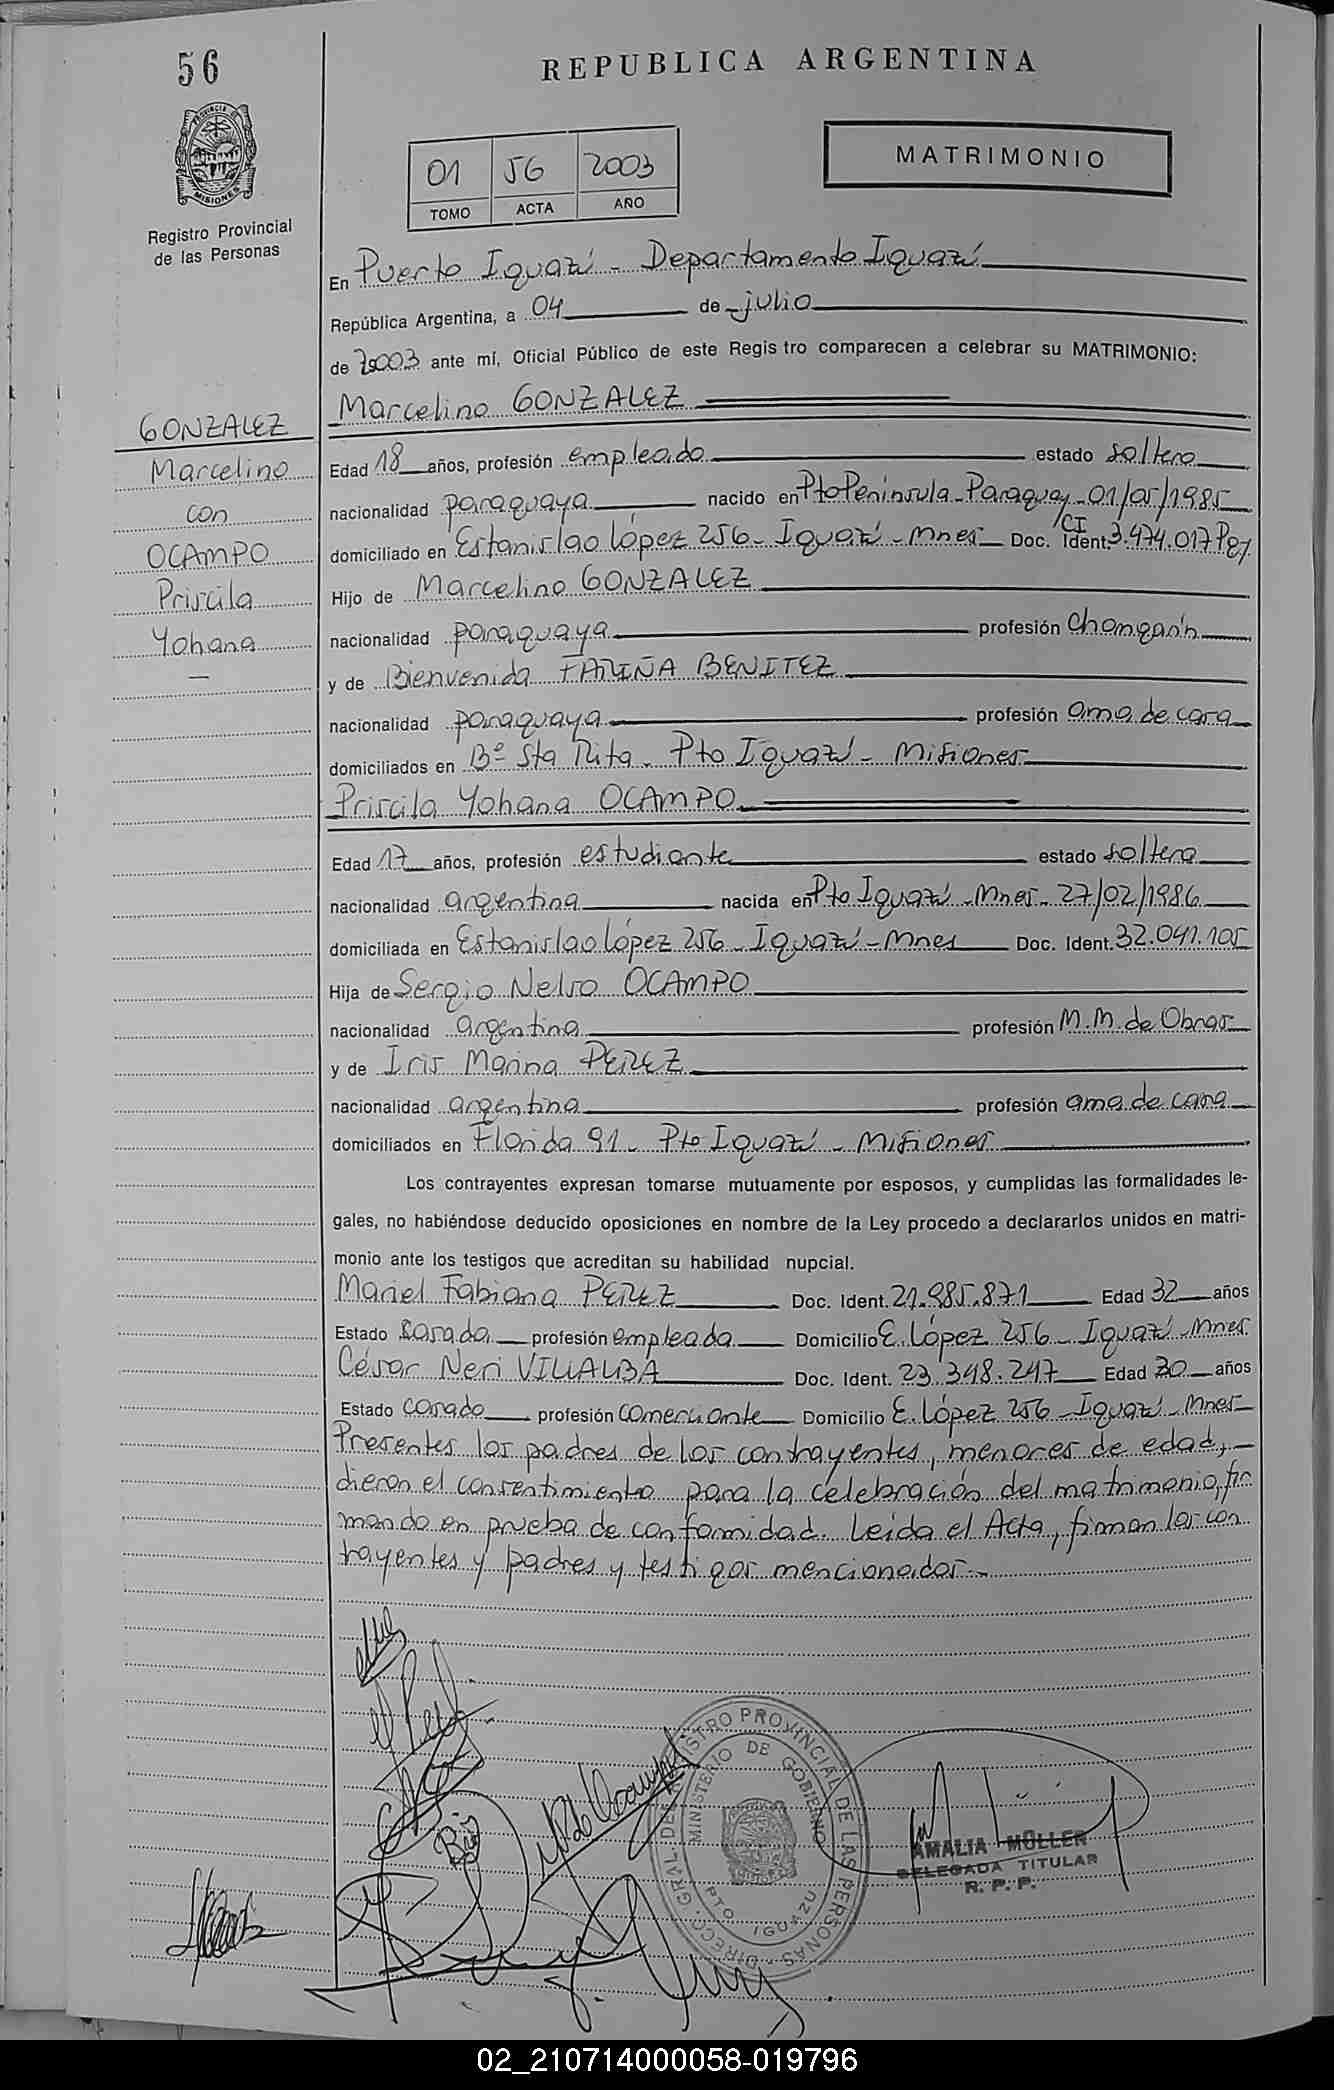 56
REPUBLICA ARGENTINA
PROVINCIA DE MISIONES
Registro Provincial
de las Personas
01 56 2003
TOMO ACTA AÑO
MATRIMONIO
En Puerto Iguazú - Departamento Iguazú
República Argentina, a 04 de julio
de 2003 ante mí, Oficial Público de este Registro comparecen a celebrar su MATRIMONIO:
Marcelino GONZALEZ
GONZALEZ
Marcelino
con
OCAMPO
Priscila
Yohana
—
Edad 18 años, profesión empleado estado soltero
nacionalidad paraguaya nacido en Pto Península - Paraguay - 01/05/1985
domiciliado en Estanislao López 256 - Iguazú - Mnes - Doc. Ident. CI 3.474.017 Pgy
Hijo de Marcelino GONZALEZ
nacionalidad paraguaya profesión changarín
y de Bienvenida FARIÑA BENITEZ
nacionalidad paraguaya profesión ama de casa
domiciliados en Bº Sta Rita - Pto Iguazú - Misiones
Priscila Yohana OCAMPO
Edad 17 años, profesión estudiante estado soltera
nacionalidad argentina nacida en Pto Iguazú - Mnes - 27/02/1986
domiciliada en Estanislao López 256 - Iguazú - Mnes Doc. Ident. 32.041.105
Hija de Sergio Nelso OCAMPO
nacionalidad argentina profesión M.M. de Obras
y de Iris Marina PEREZ
nacionalidad argentina profesión ama de casa
domiciliados en Florida 91 - Pto Iguazú - Misiones
Los contrayentes expresan tomarse mutuamente por esposos, y cumplidas las formalidades le-
gales, no habiéndose deducido oposiciones en nombre de la Ley procedo a declararlos unidos en matri-
monio ante los testigos que acreditan su habilidad nupcial.
Mariel Fabiana PEREZ Doc. Ident. 21.985.871 Edad 32 años
Estado casada profesión empleada Domicilio E. López 256 - Iguazú - Mnes
César Neri VILLALBA Doc. Ident. 23.348.247 Edad 30 años
Estado casado profesión comerciante Domicilio E. López 256 - Iguazú - Mnes
Presentes los padres de los contrayentes, menores de edad,
dieron el consentimiento para la celebración del matrimonio, fir
mando en prueba de conformidad. Leída el Acta, firman los con
trayentes y padres y testigos mencionados.-
DIRECC. GRAL. DEL REGISTRO PROVINCIAL DE LAS PERSONAS
MINISTERIO DE GOBIERNO
PTO IGUAZU
AMALIA MÜLLER
DELEGADA TITULAR
R. P. P.
02_210714000058-019796